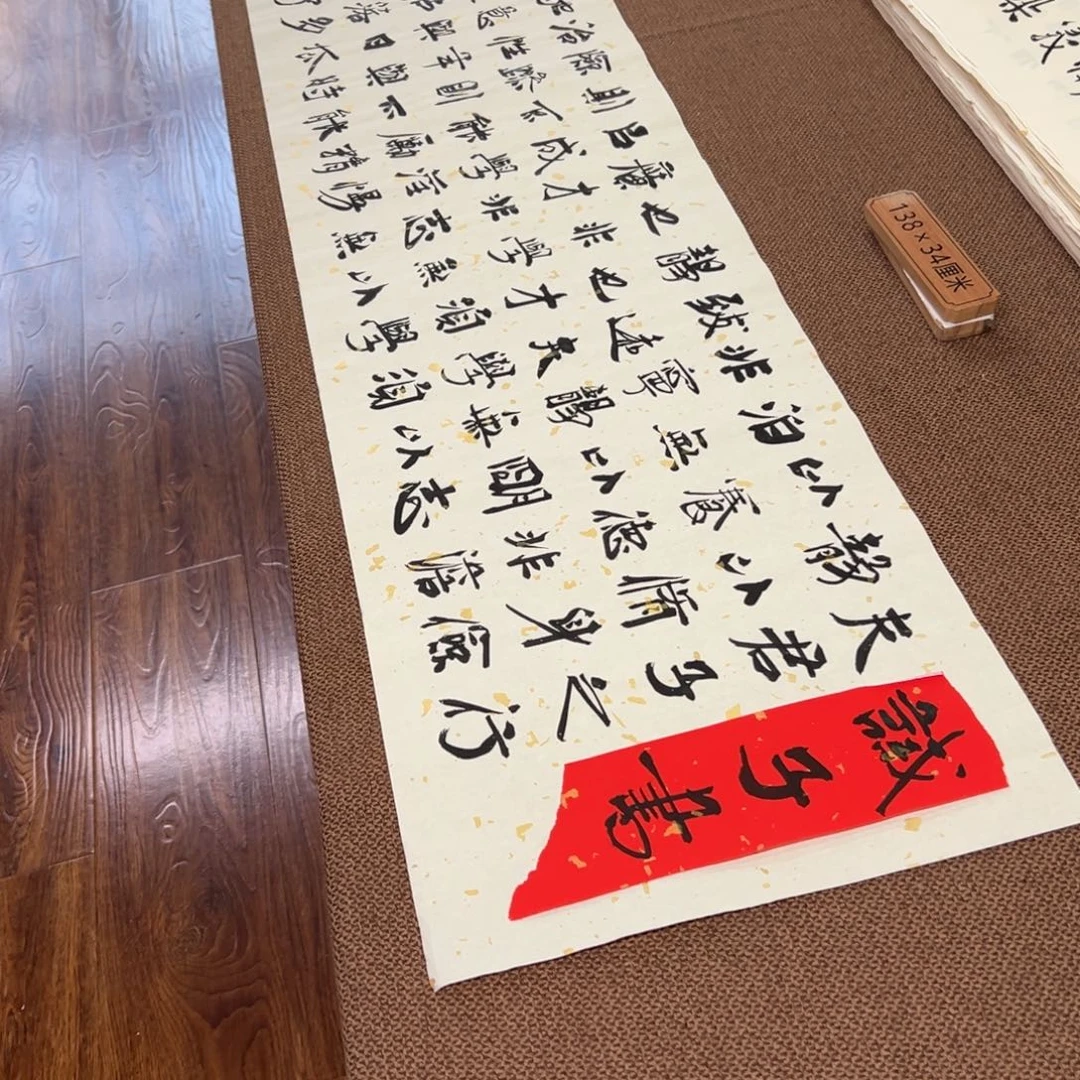 誡子書
夫君子之行
靜以脩身儉
以養德非澹
泊無以明志
非寧靜無以
致遠夫學須
靜也才須學
也非學無以
廣才非志無
以成學淫慢
則不能勵精
險躁則不能
治性年與時
馳意與日去
落多
138×34厘米